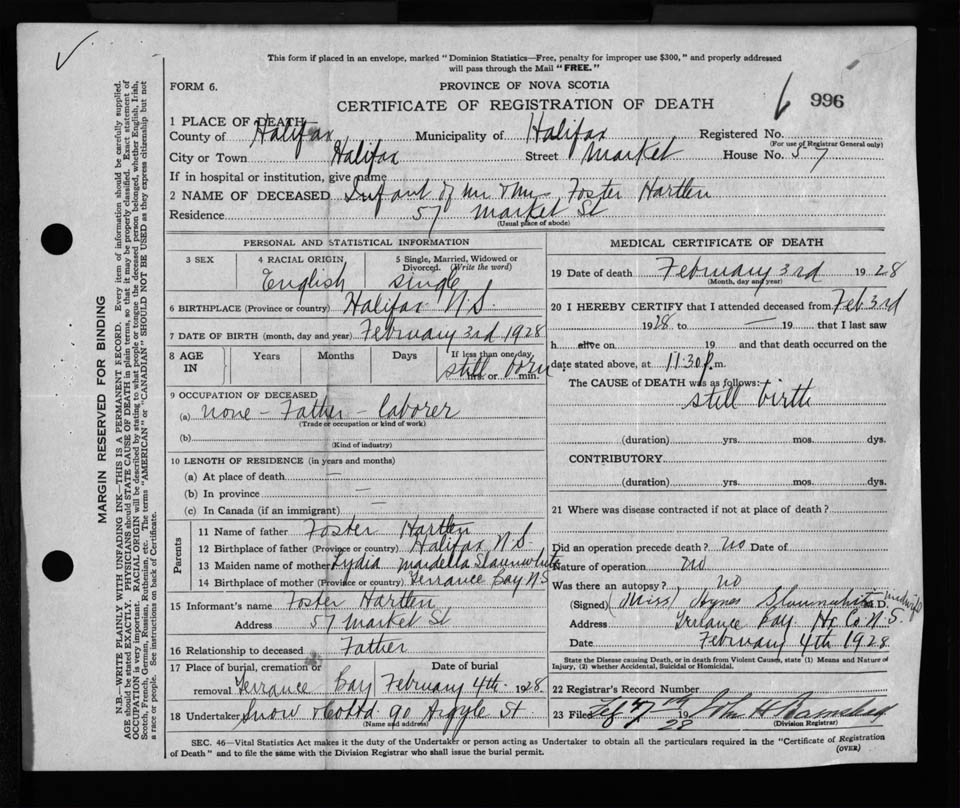 This form if placed in an envelope, marked "Dominion Statistics—Free, penalty for improper use $300," and properly addressed
will pass through the Mail "FREE."
FORM 6.
PROVINCE OF NOVA SCOTIA
CERTIFICATE OF REGISTRATION OF DEATH
996
1 PLACE OF DEATH
County of Halifax Municipality of Halifax Registered No.
(For use of Registrar General only)
City or Town Halifax Street Market House No. 57
If in hospital or institution, give name
2 NAME OF DECEASED Infant of Mr & Mrs Foster Hartlen
Residence 57 Market St
(Usual place of abode)
PERSONAL AND STATISTICAL INFORMATION
3 SEX
4 RACIAL ORIGIN
English
5 Single, Married, Widowed or
Divorced. (Write the word)
Single
6 BIRTHPLACE (Province or country) Halifax N.S.
7 DATE OF BIRTH (month, day and year) February 3rd 1928
8 AGE
IN
Years Months Days If less than one day
hrs. or min.
still born
9 OCCUPATION OF DECEASED
(a) none - Father - laborer
(Trade or occupation or kind of work)
(b)
(Kind of industry)
10 LENGTH OF RESIDENCE (in years and months)
(a) At place of death —
(b) In province —
(c) In Canada (if an immigrant) —
Parents
11 Name of father Foster Hartlen
12 Birthplace of father (Province or country) Halifax N.S.
13 Maiden name of mother Lydia Slaunwhite
14 Birthplace of mother (Province or country) Terrance Bay N.S
15 Informant's name Foster Hartlen
Address 57 Market St
16 Relationship to deceased Father
17 Place of burial, cremation or
removal Terrance Bay
Date of burial
February 4th 1928
18 Undertaker Snow & Co Ltd 90 Argyle St.
(Name and address)
MEDICAL CERTIFICATE OF DEATH
19 Date of death February 3rd 1928
(Month, day and year)
20 I HEREBY CERTIFY that I attended deceased from Feb 3rd
1928 to — 19 that I last saw
h alive on 19 and that death occurred on the
date stated above, at 11.30 p.m.
The CAUSE of DEATH was as follows:
still birth
(duration) yrs. mos. dys.
CONTRIBUTORY
(duration) yrs. mos. dys.
21 Where was disease contracted if not at place of death?
Did an operation precede death? no Date of
Nature of operation no
Was there an autopsy? no
(Signed) (Miss) Agnes Slaunwhite M.D. midwife
Address Terrance Bay Hx Co N.S.
Date February 4th 1928
State the Disease causing Death, or in death from Violent Causes, state (1) Means and Nature of
Injury, (2) whether Accidental, Suicidal or Homicidal.
22 Registrar's Record Number
23 Filed Feb 7th 1928 John H
(Division Registrar)
SEC. 46—Vital Statistics Act makes it the duty of the Undertaker or person acting as Undertaker to obtain all the particulars required in the "Certificate of Registration
of Death" and to file the same with the Division Registrar who shall issue the burial permit.
(OVER)
MARGIN RESERVED FOR BINDING
N.B.—WRITE PLAINLY WITH UNFADING INK—THIS IS A PERMANENT RECORD. Every item of information should be carefully supplied.
AGE should be stated EXACTLY. PHYSICIANS should STATE CAUSE OF DEATH in plain terms, so that it may be properly classified. Exact statement of
OCCUPATION is very important. RACIAL ORIGIN will be described by stating to what people or tongue the deceased person belonged, whether English, Irish,
Scotch, French, German, Russian, Ruthenian, etc. The terms "AMERICAN" or "CANADIAN" SHOULD NOT BE USED as they express citizenship but not
a race or people. See instructions on back of Certificate.